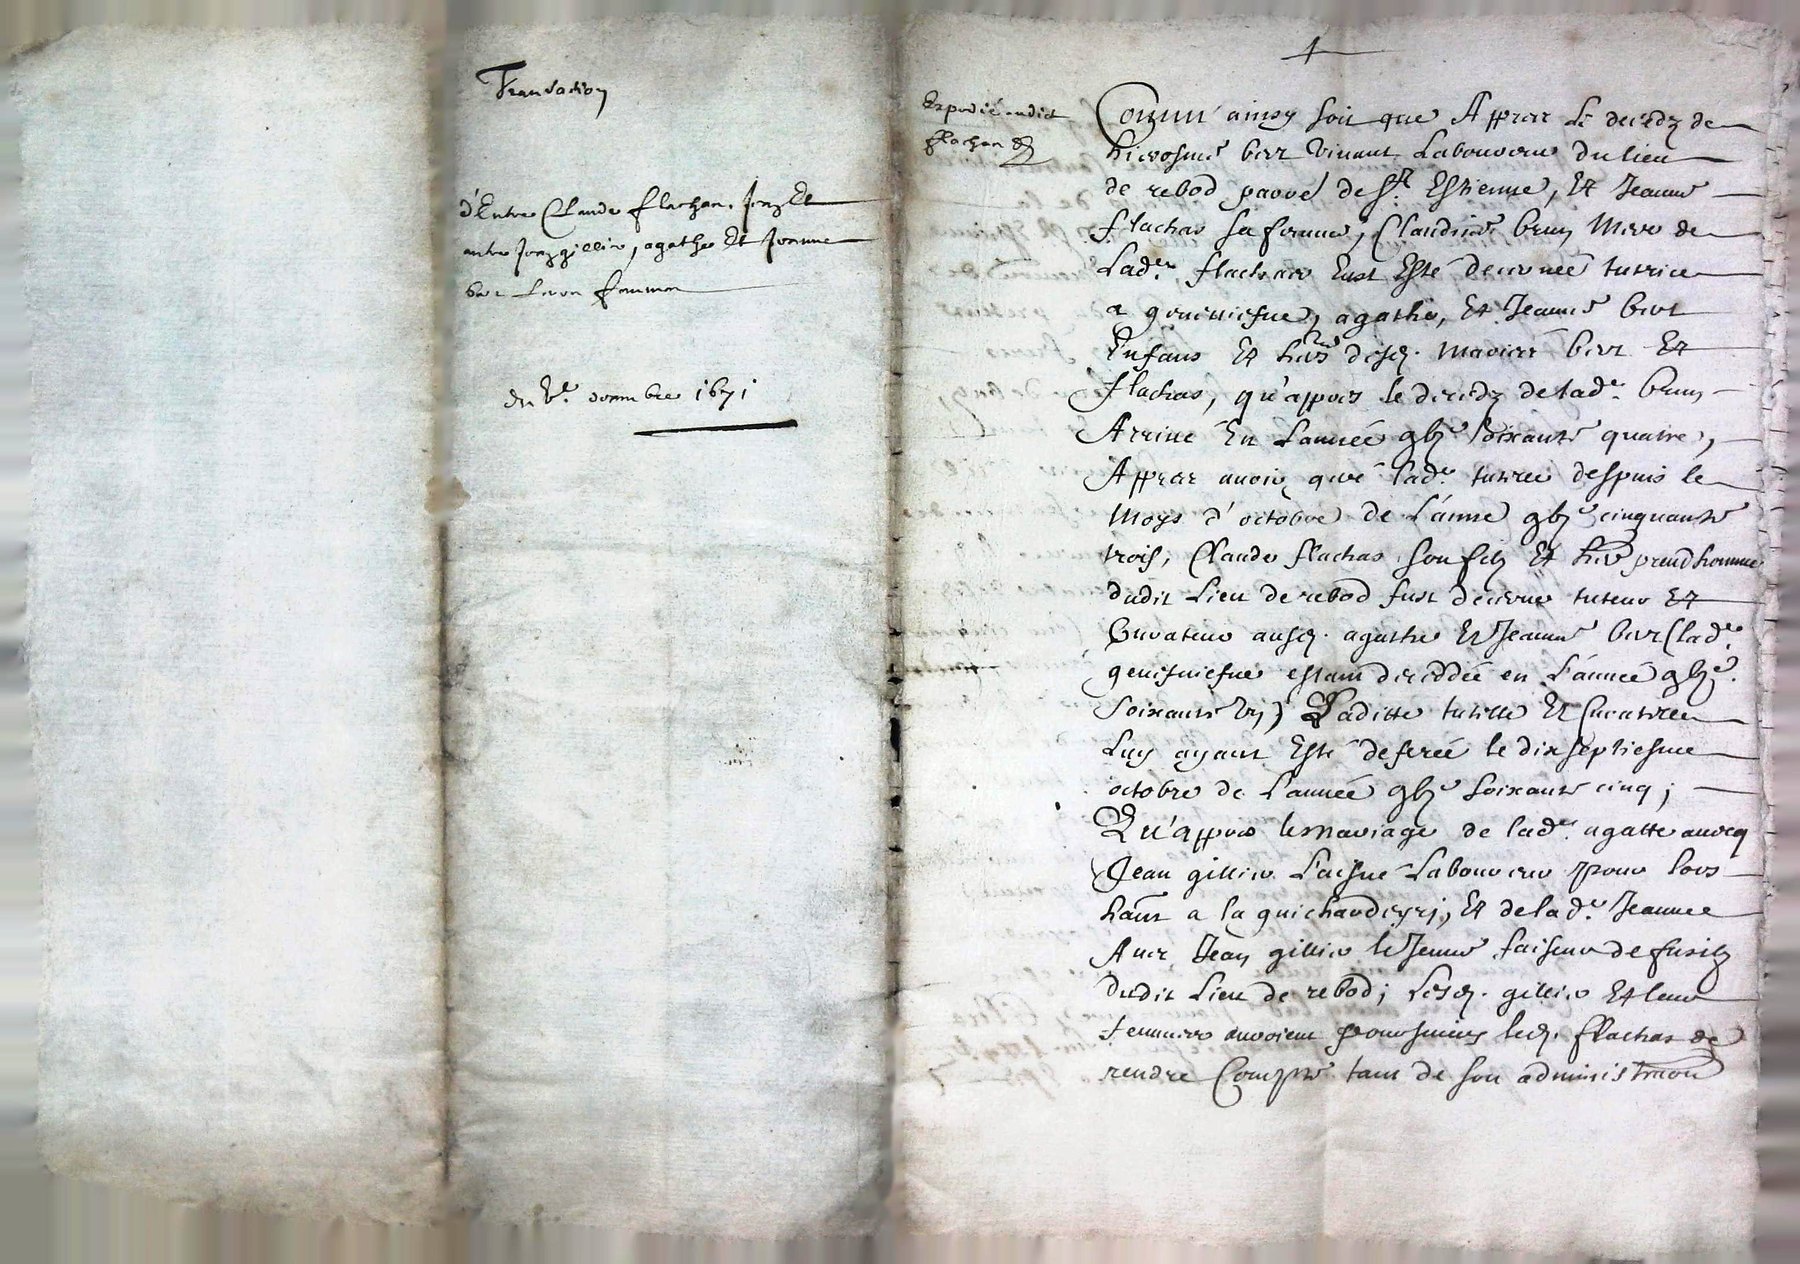 Transaction
d'Entre Claude flachas, Jean Et
autre Jean gillier, agathe Et Jeanne
ber Leurs femmes
du Ve. novembre 1671
Expedié audict
flachas
Comm' ainsy soit que Appres Le decedz de
hierosme ber vivant Laboureur du lieu
de rebod paroe de St. Estienne, Et Jeanne
flachas sa femme, Claudine brun Mere de
Lade. flachas Eust Esté decernéé tutrice
a geneviefve, agathe, Et Jeanne ber
Enfans Et hers desd. mariés ber Et
flachas, qu'appres le decedz de lade. brun
Arrivé En L'année gbje soixante quatre,
Appres avoir geré lade. tutele despuis le
moys d'octobre de L'anné gbje cinquante
trois, Claude flachas son filz Et her preudhomme
dudit Lieu de rebod fust decerné tuteur Et
Curateur ausd. agathe Et Jeanne ber (lade.
genefviefve estant deceddéé en L'année gbje.
soixante vn) Laditte tutelle Et Curatelle
Luy ayant Esté deferéé le dix septiesme
octobre de L'année gbje soixante cinq;
Qu'appres le mariage de lade. agatte avecq
Jean gillier L'aisné Laboureur pour lors
hant a la guichardeyri, Et de lade. Jeanne
Avec Jean gillier le Jeune faiseur de fusilz
dudit Lieu de rebod; Lesd. gillier Et leur
femmes avoient poursuivy led. flachas de
rendre Compte tant de son administraon